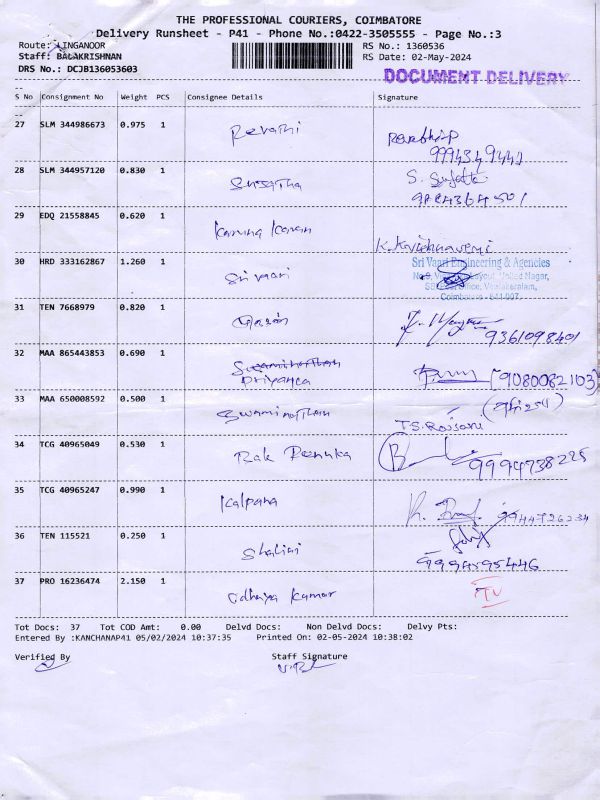 THE PROFESSIONAL COURIERS, COIMBATORE
Delivery Runsheet - P41 - Phone No.:0422-3505555 - Page No.:3
Route: LINGANOOR RS No.: 1360536
Staff: BALAKRISHNAN RS Date: 02-May-2024
DRS No.: DCJB136053603 DOCUMENT DELIVERY
S No Consignment No Weight PCS Consignee Details Signature
27 SLM 344986673 0.975 1 Revathi
28 SLM 344957120 0.830 1 Sujatha S. Sujatha
29 EDQ 21558845 0.620 1 K. Krishnaveni
30 HRD 333162867 1.260 1 Sri vaari Sri Vaari Engineering & Agencies
Coimbatore - 641 007.
31 TEN 7668979 0.820 1 9361098401
32 MAA 865443853 0.690 1 Priyanca (9080082103)
33 MAA 650008592 0.500 1 Swaminathan
34 TCG 40965049 0.530 1 Rak Reenuka 9994738225
35 TCG 40965247 0.990 1 Kalpana 9944726234
36 TEN 115521 0.250 1 Shalini
37 PRO 16236474 2.150 1 Udhaya Kumar TV
Tot Docs: 37 Tot COD Amt: 0.00 Delvd Docs: Non Delvd Docs: Delvy Pts:
Entered By :KANCHANAP41 05/02/2024 10:37:35 Printed On: 02-05-2024 10:38:02
Verified By Staff Signature